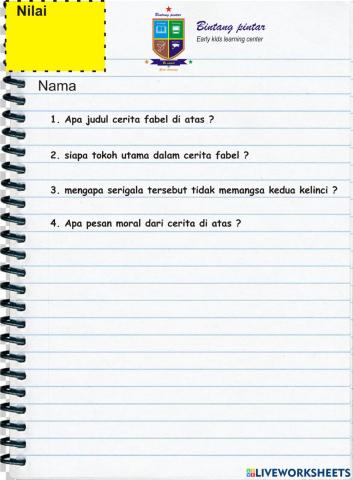 Nilai
Bintang pintar
Bintang pintar
Early kids learning center
Nama
1. Apa judul cerita fabel di atas ?
2. siapa tokoh utama dalam cerita fabel ?
3. mengapa serigala tersebut tidak memangsa kedua kelinci ?
4. Apa pesan moral dari cerita di atas ?
LIVEWORKSHEETS